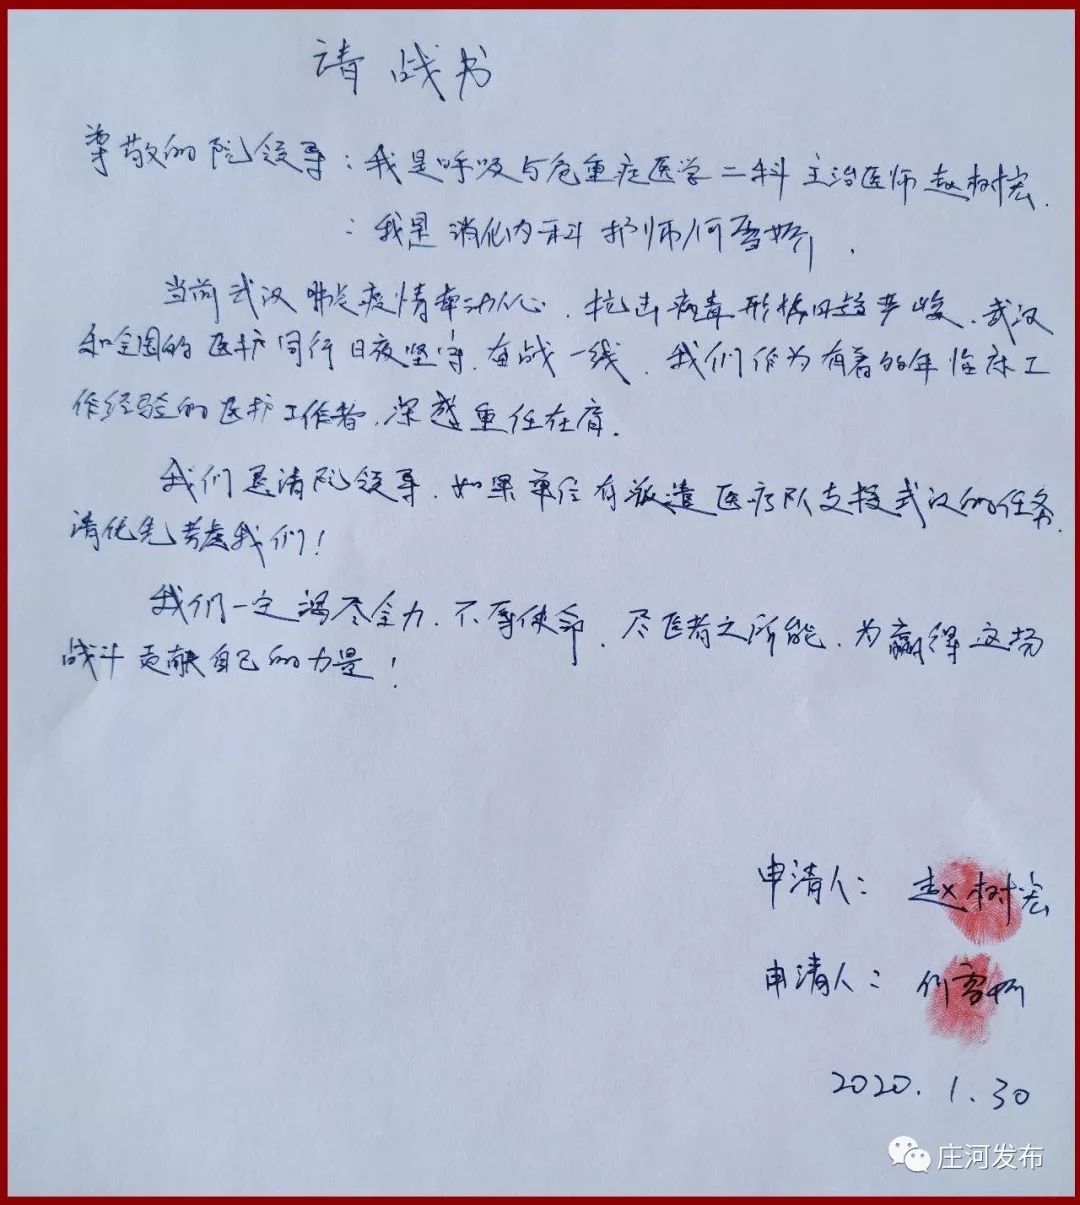 请战书
尊敬的院领导：我是呼吸与危重症医学二科主治医师赵树宏.
：我是消化内科护师何雪娇.
当前武汉肺炎疫情牵动人心.抗击病毒形势日趋严峻.武汉
和全国的医护同行日夜坚守.奋战一线.我们作为有着多年临床工
作经验的医护工作者.深感重任在肩.
我们恳请院领导.如果单位有派遣医疗队支援武汉的任务.
请优先考虑我们！
我们一定竭尽全力.不辱使命.尽医者之所能.为赢得这场
战斗贡献自己的力量！
申请人：赵树宏
申请人：何雪娇
2020.1.30
庄河发布